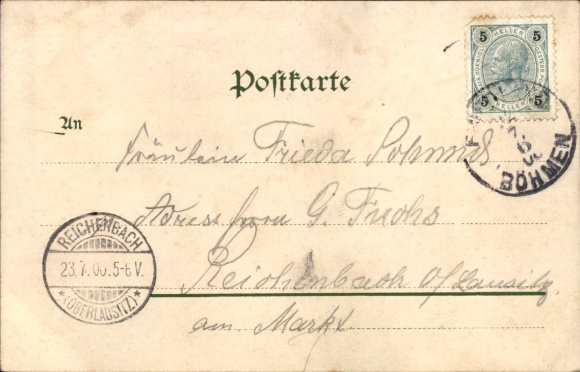 5 HELLER 5
5 HELLER 5
Postkarte
BÖHMEN
An
Fräulein Frieda Schmidt
Adresse Herrn G. Fuchs
Reichenbach O/Lausitz
am Markt
REICHENBACH
23.7.00.5-6V.
* (OBERLAUSITZ) *